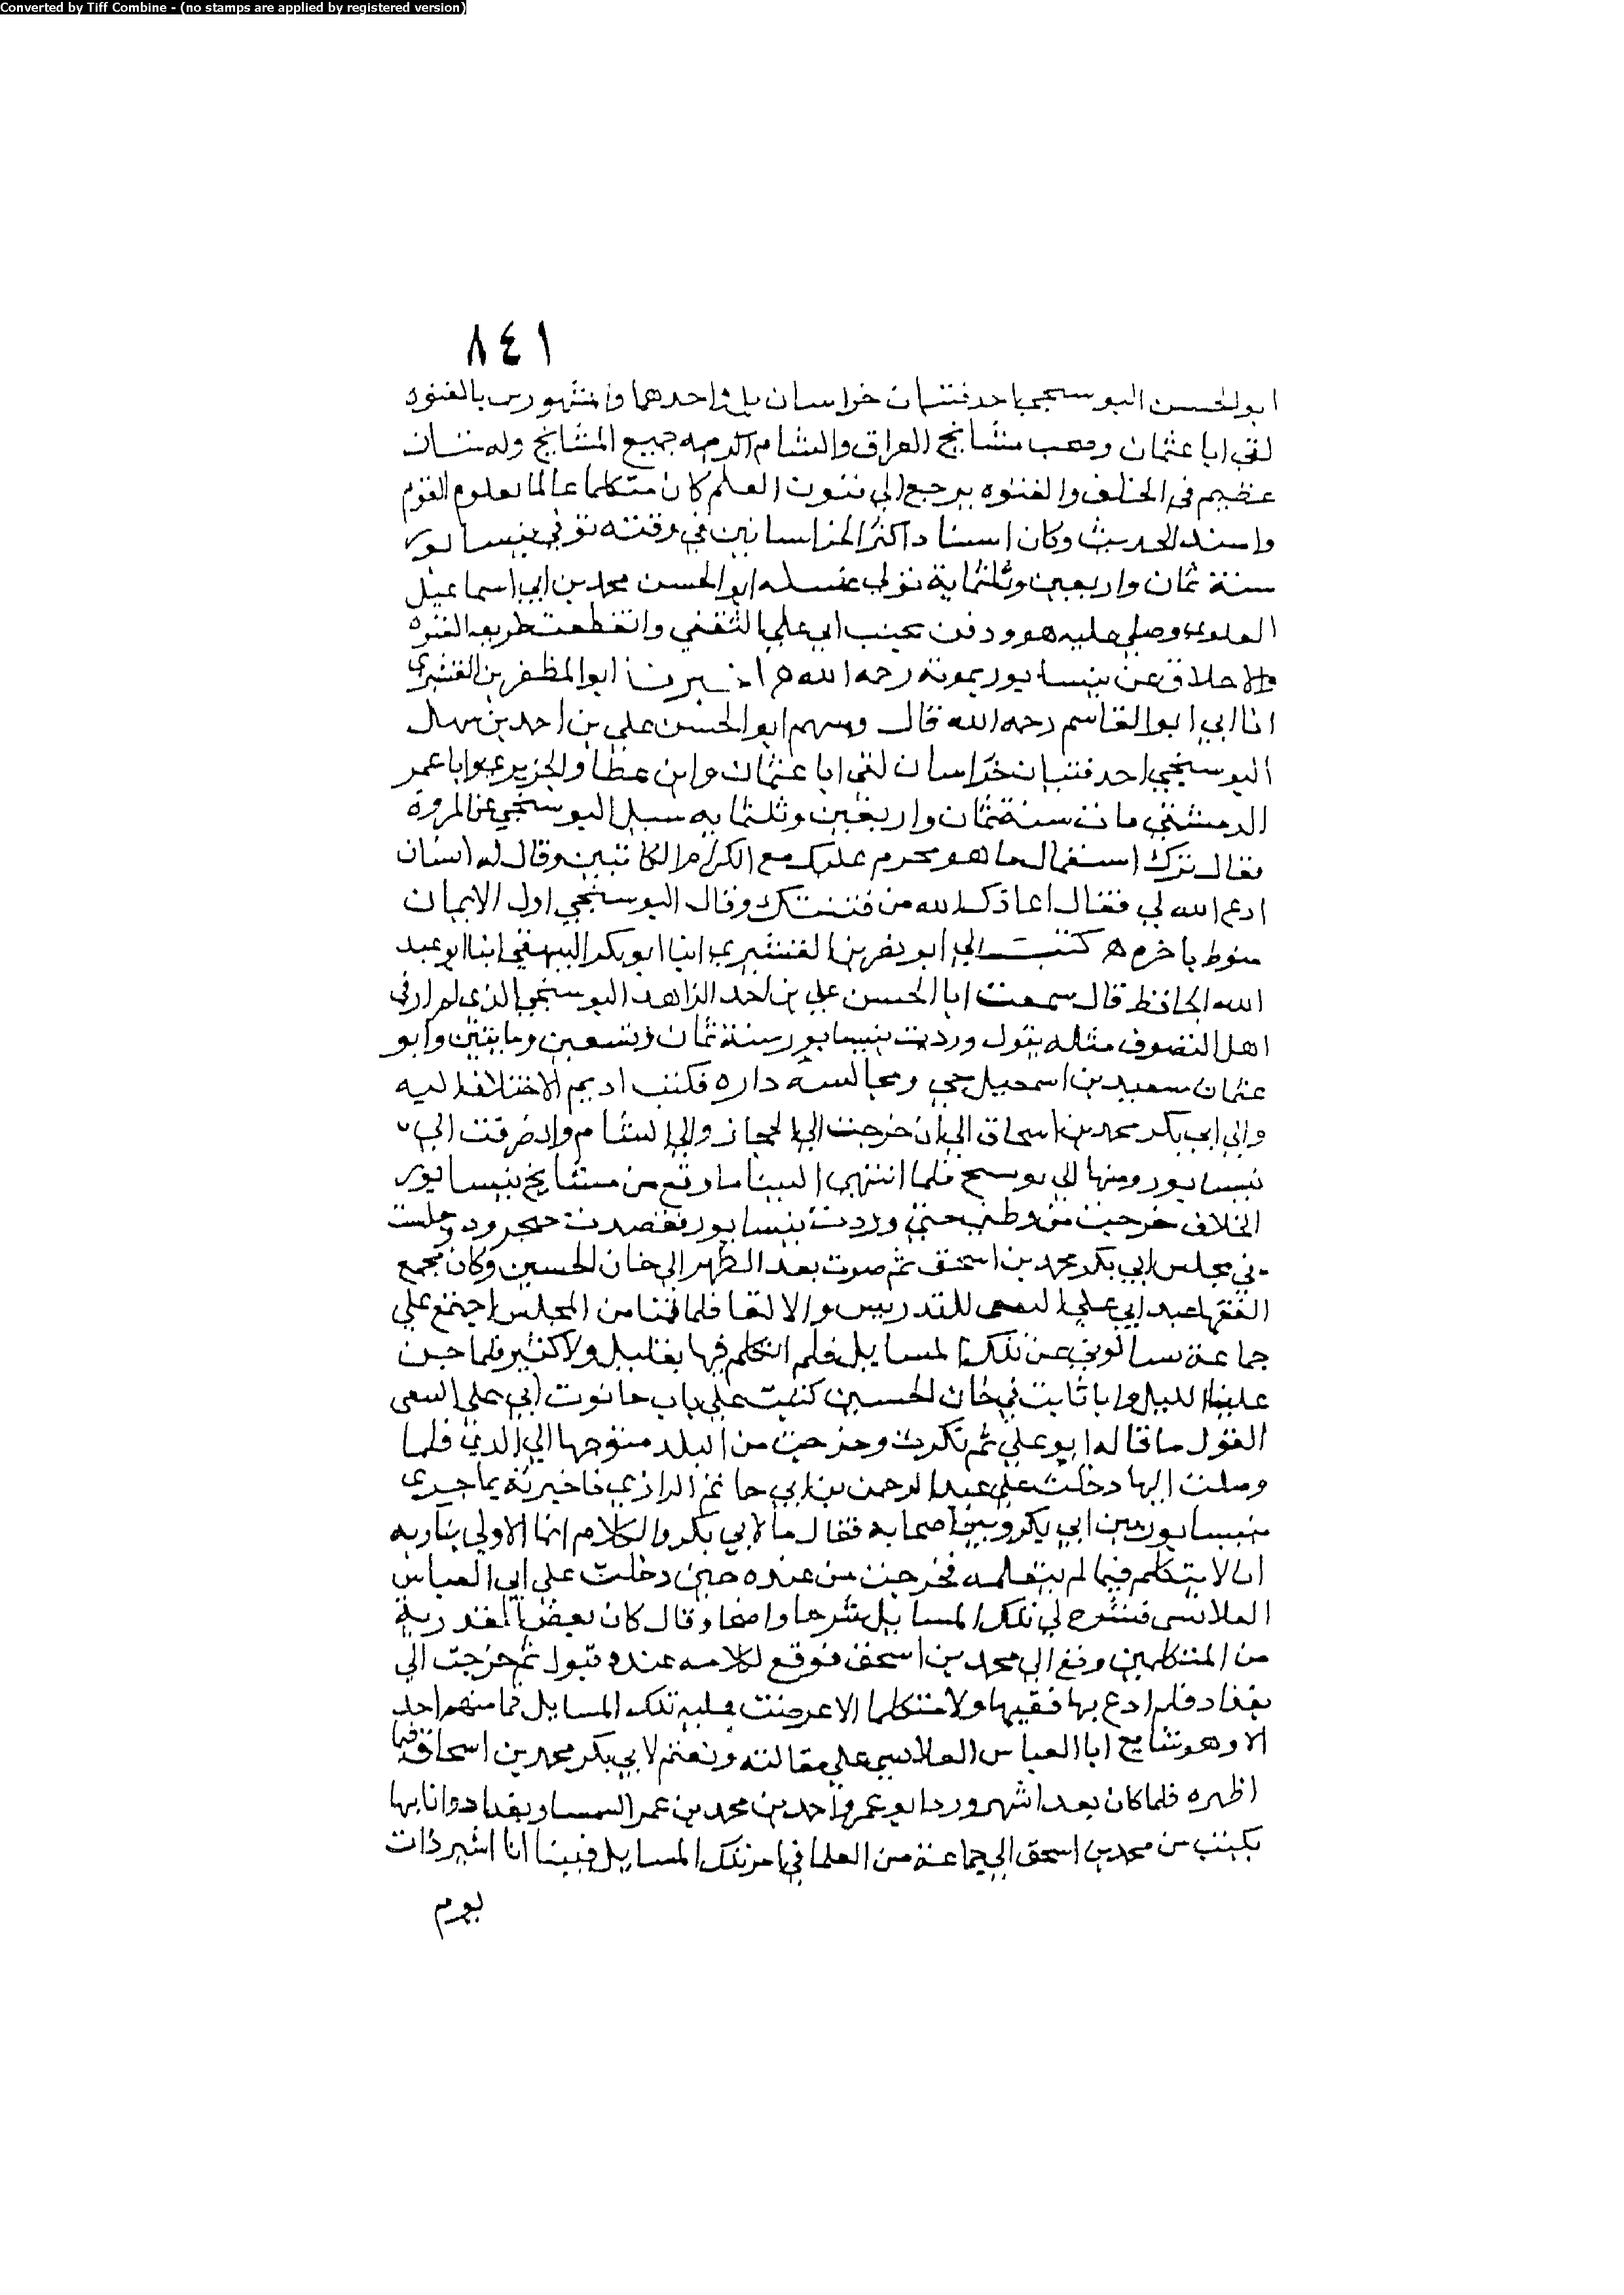 Converted by Tiff Combine - (no stamps are applied by registered version)
٨٤١
ابو الحسن البوسنجي احد فتيان خراسان بل واحدها والمشهورين بالفتوه
لقي ابا عثمان وصحب مشايخ العراق والشام اكرمه جميع المشايخ وله شان
عظيم في الخلف والفتوه يرجع الي فنون العلم كان متكلما عالما بعلوم القوم
واسند الحديث وكان استاد اكثر الخراسانيين في وقته توفي بنيسابور
سنة ثمان واربعين وثلثماية تولي غسله ابو الحسن محمد بن ابي اسماعيل
العلوي وصلي عليه هو ودفن بجنب ابي علي الثقفي وانقطعت طريقه الفتوه
والاخلاق عن نيسابور بموته رحمه الله ه اخبرنا ابو المظفر بن القشيري
انا ابي ابو القاسم رحمه الله قال ومنهم ابو الحسن علي بن احمد بن سهل
البوسنجي احد فتيان خراسان لقي ابا عثمان وابن عطا والجريري وابا عمر
الدمشقي مات سنة ثمان واربعين وثلثمايه سيل البوسنجي عن المروة
فقال ترك استعمال ما هو محرم عليك مع الكرام الكاتبين وقال له انسان
ادع الله لي فقال اعاذك الله من فتنتك وقال البوسنجي اول الايمان
منوط باخره ه كتب الي ابو نصر بن القشيري انبا ابو بكر البيهقي انبا ابو عبد
الله الحافظ قال سمعت ابا الحسن علي بن احمد الزاهد البوسنجي الذي لم ار في
اهل التصوف مثله يقول وردت نيسابور سنة ثمان وتسعين ومايتين وابو
عثمان سعيد بن اسمعيل حي ومجالسة داره فكنت اديم الاختلاف اليه
والي ابي بكر محمد بن اسحاق الي ان خرجت الي الحجاز والي الشام وانصرفت الي
نيسابور ومنها الي بوسنج فلما انتهي الينا ما وقع من مشايخ نيسابور
الخلاف خرجت من وطني حتي وردت نيسابور فقصدت جنجرود وجلست
في مجلس ابي بكر محمد بن اسحق ثم صرت بعد الظهر الي خان الحسين وكان مجمع
الفقها عبد ابي علي الثقفي للتدريس والالقا فلما قمنا من المجلس اجتمع علي
جماعة سالوني عن تلك المسايل فلم اتكلم فيها بقليل ولا كثير فلما جن
علينا الليل وابا ثابت في خان الحسين كتبت علي باب حانوت ابي علي الثقفي
القول ما قاله ابو علي ثم بكرت وخرجت من البلد متوجها الي الري فلما
وصلت اليها دخلت علي عبد الرحمن بن ابي حاتم الرازي فاخبرته بما جري
بنيسابور بين ابي بكر وبين اصحابه فقال ما لابي بكر والكلام انما الاولي بنا وبه
ان لا يتكلم فيما لم يتعلمه فخرجت من عنده حتي دخلت علي ابي العباس
القلانسي فشرح لي تلك المسايل شرحا واضحا وقال كان بعض القدرية
من المتكلمين وقع الي محمد بن اسحق فوقع لكلامه عنده قبول ثم خرجت الي
بغداد فلم ادع بها فقيها ولا متكلما الا عرضت عليه تلك المسايل فما منهم احد
الا وهو يتابع ابا العباس القلانسي علي مقالته ويغتم لابي بكر محمد بن اسحاق فيما
اظهره فلما كان بعد اشهر ورد ابو عمرو احمد بن محمد بن عمر السمسار بغداد وانا بها
بكتب من محمد بن اسحق الي جماعة من العلما في امر تلك المسايل فبينا انا اسير ذات
يوم